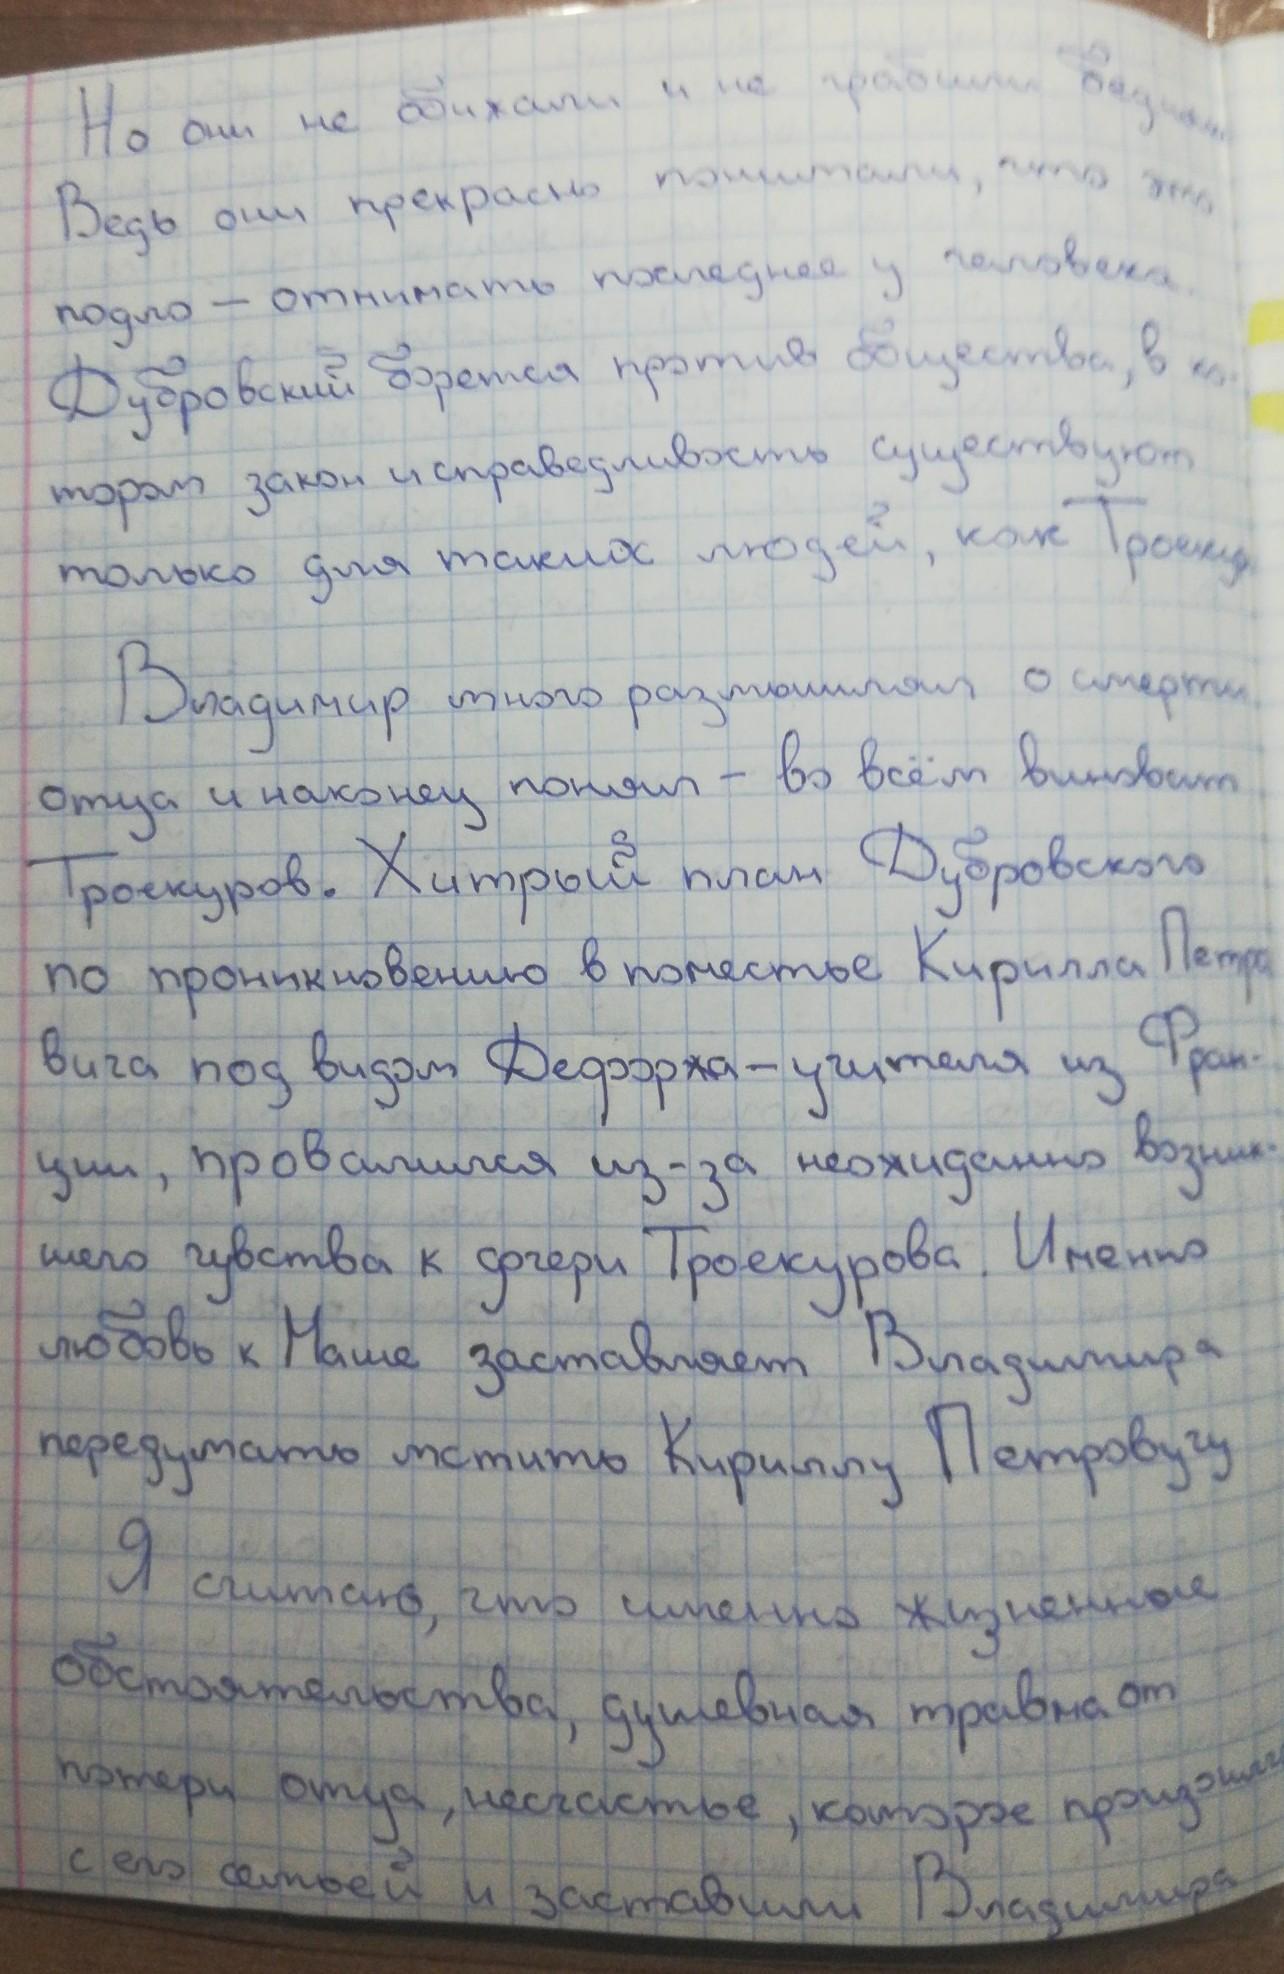 Но они не обижали и не грабили бедных
Ведь они прекрасно понимали, что это
подло – отнимать последнее у человека.
Дубровский борется против общества, в ко-
тором закон и справедливость существуют
только для таких людей, как Троекур
Владимир много размышлял о смерти
отца и наконец понял – во всём виноват
Троекуров. Хитрый план Дубровского
по проникновению в поместье Кирилла Петро
вича под видом Дефоржа – учителя из Фран-
ции, провалился из-за неожиданно возник-
шего чувства к дочери Троекурова. Именно
любовь к Маше заставляет Владимира
передумать мстить Кириллу Петровичу
Я считаю, что именно жизненные
обстоятельства, душевная травма от
потери отца, несчастье, которое произошло
с его семьей и заставили Владимира